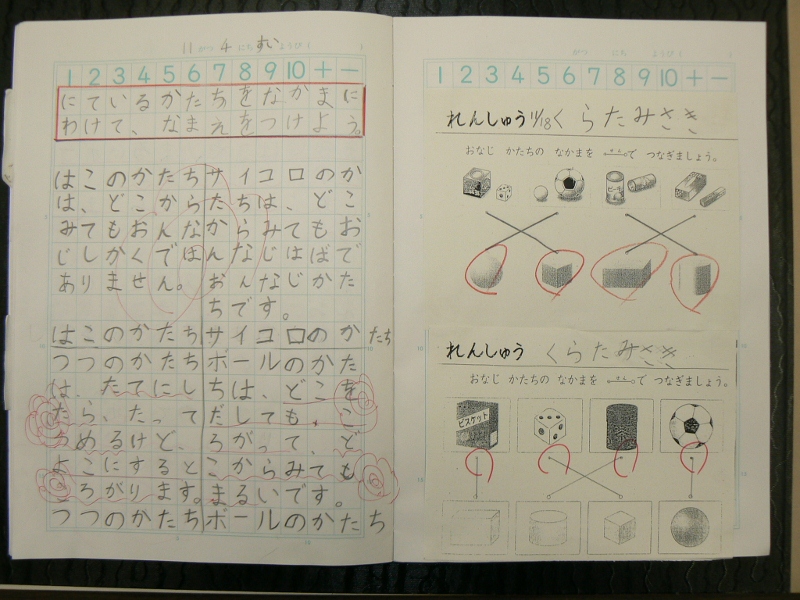 11 がつ 4 にち すい ようび
1 2 3 4 5 6 7 8 9 10 + −
にているかたちをなかまに
わけて、なまえをつけよう。
はこのかたち
は、どこから
みてもおんな
じしかくでは
ありません。
サイコロのか
たちは、どこ
からみてもお
んなじはばで
おんなじかた
ちです。
はこのかたち
サイコロのかたち
つつのかたち
は、たてにし
たら、たって
めるけど、
よこにすると
ころがります。
つつのかたち
ボールのかた
ちは、どこを
だしても、こ
ろがって、ど
こからみても
まるいです。
ボールのかたち
がつ にち ようび
1 2 3 4 5 6 7 8 9 10 + −
れんしゅう 11/18 くらたみさき
おなじ かたちの なかまを せんで つなぎましょう。
れんしゅう くらたみさき
おなじ かたちの なかまを せんで つなぎましょう。
ビスケット